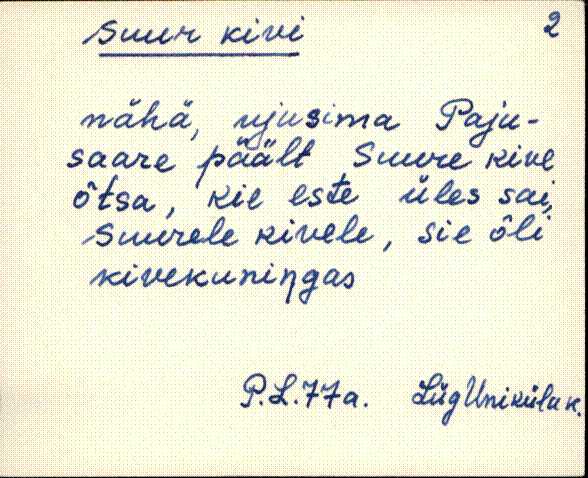 Suur kivi 2
nähä, ujusima Paju-
saare päält Suure kive
õtsa, kie este üles sai,
Suurele kivele, sie õli
kivekuniŋgas
P.L.77a. Lüg Uniküla k.